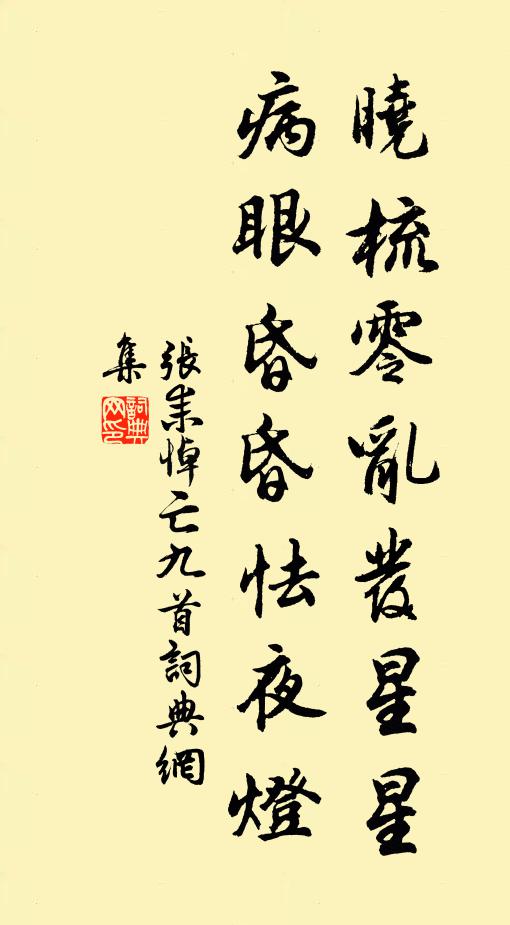 曉梳零亂發星星
病眼昏昏怯夜燈
張耒悼亡九首詞典網
集
詞典網印